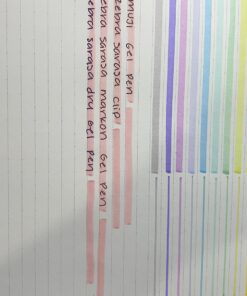 muji gel pen
zebra sarasa clip
zebra sarasa markon gel pen
zebra sarasa dry gel pen